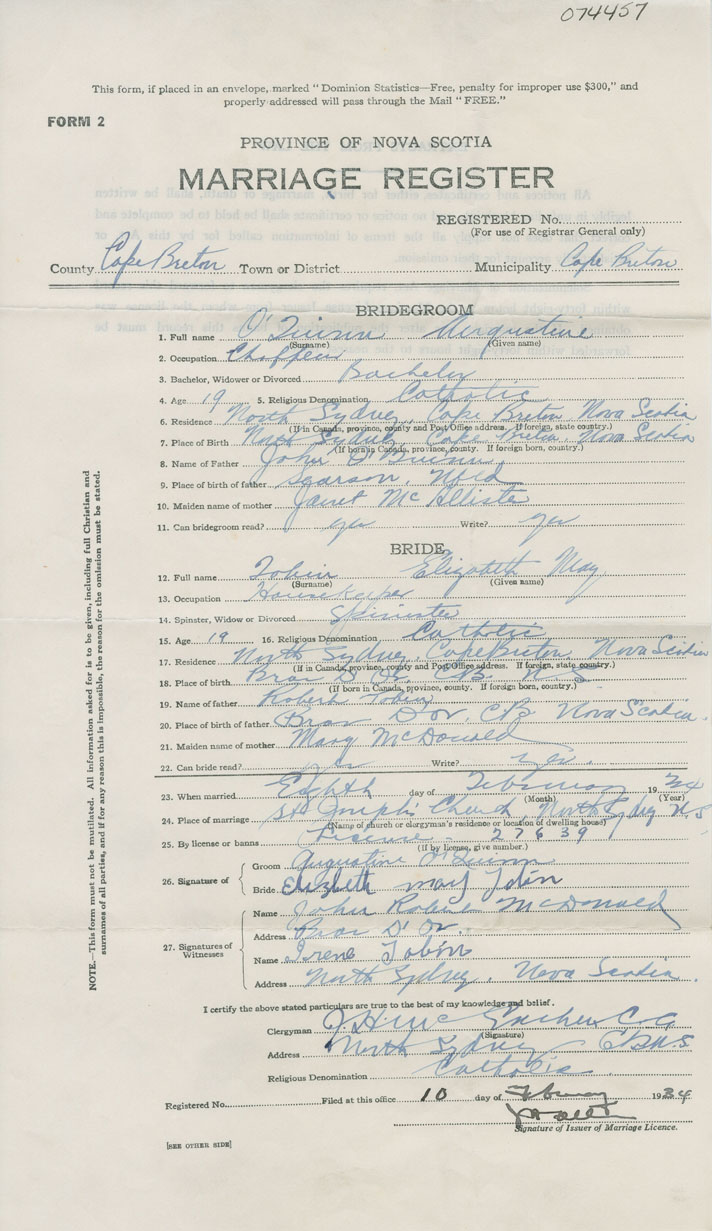 074457
This form, if placed in an envelope, marked "Dominion Statistics—Free, penalty for improper use $300," and
properly addressed will pass through the Mail "FREE."
FORM 2
PROVINCE OF NOVA SCOTIA
MARRIAGE REGISTER
REGISTERED No.
(For use of Registrar General only)
County Cape Breton Town or District Municipality Cape Breton
BRIDEGROOM
1. Full name O'Quinn Augustine
(Surname) (Given name)
2. Occupation Chaffeur
3. Bachelor, Widower or Divorced Bachelor
4. Age 19 5. Religious Denomination Catholic
6. Residence North Sydney, Cape Breton, Nova Scotia
(If in Canada, province, county and Post Office address. If foreign, state country.)
7. Place of Birth North Sydney, Cape Breton, Nova Scotia
(If born in Canada, province, county. If foreign born, country.)
8. Name of Father John O'Quinn
9. Place of birth of father Nfld
10. Maiden name of mother Janet McAllister
11. Can bridegroom read? yes Write? yes
BRIDE
12. Full name Tobin Elizabeth May
(Surname) (Given name)
13. Occupation Housekeeper
14. Spinster, Widow or Divorced Spinster
15. Age 19 16. Religious Denomination Catholic
17. Residence North Sydney, Cape Breton, Nova Scotia
(If in Canada, province, county and Post Office address. If foreign, state country.)
18. Place of birth Bras D'Or, C.B. N.S
(If born in Canada, province, county. If foreign born, country.)
19. Name of father Robert Tobin
20. Place of birth of father Bras D'Or, C.B. Nova Scotia.
21. Maiden name of mother Mary McDonald
22. Can bride read? yes Write? yes.
23. When married Eighth day of February 1934
(Month) (Year)
24. Place of marriage St Joseph's Church, North Sydney N.S
(Name of church or clergyman's residence or location of dwelling house)
25. By license or banns License 27639
(If by license, give number.)
26. Signature of
Groom Augustine O'Quinn
Bride Elizbeth may Tobin
27. Signatures of Witnesses
Name John Robert McDonald
Address Bras D'Or.
Name Irene Tobin
Address North Sydney, Nova Scotia.
I certify the above stated particulars are true to the best of my knowledge and belief.
Clergyman J. H. McEachen C.C.
(Signature)
Address North Sydney C.B. N.S
Religious Denomination Catholic.
Registered No. Filed at this office 10 day of February 1934
Signature of Issuer of Marriage Licence.
[SEE OTHER SIDE]
NOTE.—This form must not be mutilated. All information asked for is to be given, including full Christian and
surnames of all parties, and if for any reason this is impossible, the reason for the omission must be stated.